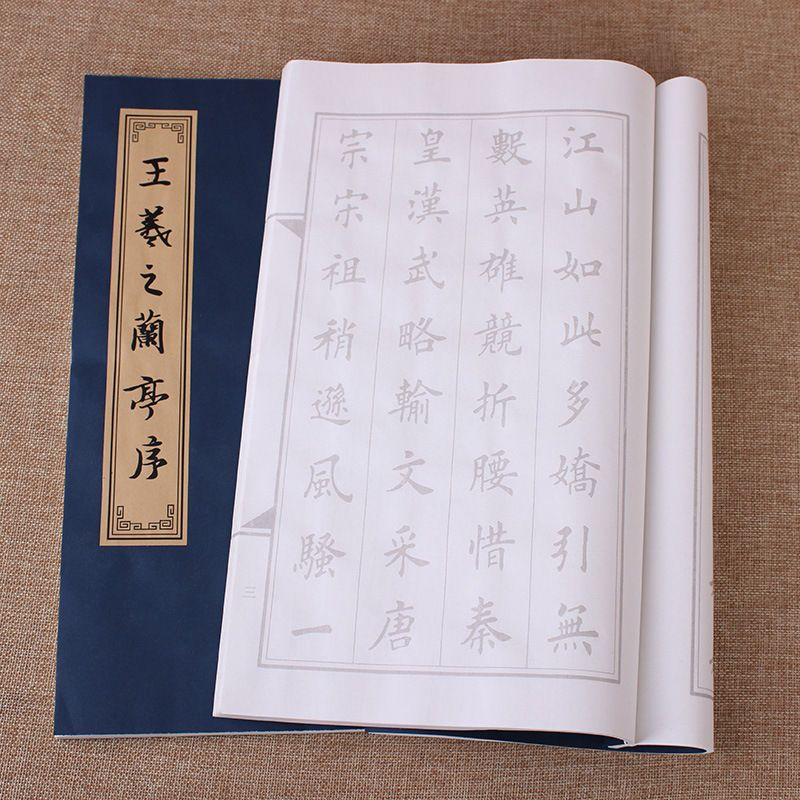 王羲之蘭亭序
江山如此多嬌引無
數英雄競折腰惜秦
皇漢武略輸文采唐
宗宋祖稍遜風騷一
三